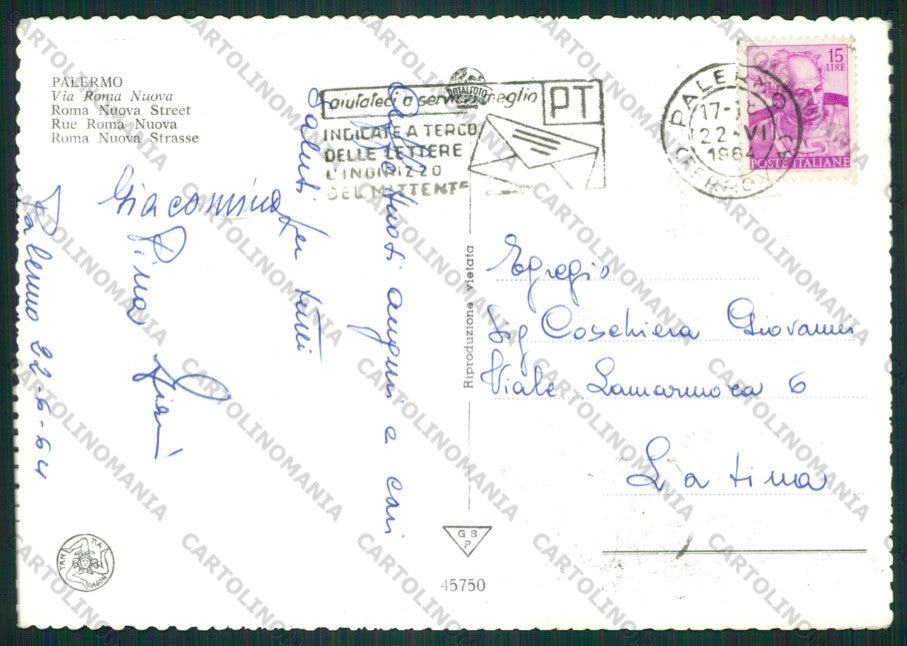 PALERMO
Via Roma Nuova
Roma Nuova Street
Rue Roma Nuova
Roma Nuova Strasse
aiutateci a servirvi meglio
PT
INDICATE A TERGO
DELLE LETTERE
L'INDIRIZZO
DEL MITTENTE
PALERMO
17-18
22-VI
1964
(FERROVIA)
15
LIRE
POSTE ITALIANE
Palermo 22-6-64
auguri e cari
saluti per tutti
Giacomina
Pina
Egregio
Sig Coschiera Giovanni
Viale Lamarmora 6
Latina
Riproduzione vietata
G B
P
45750
CARTOLINOMANIA